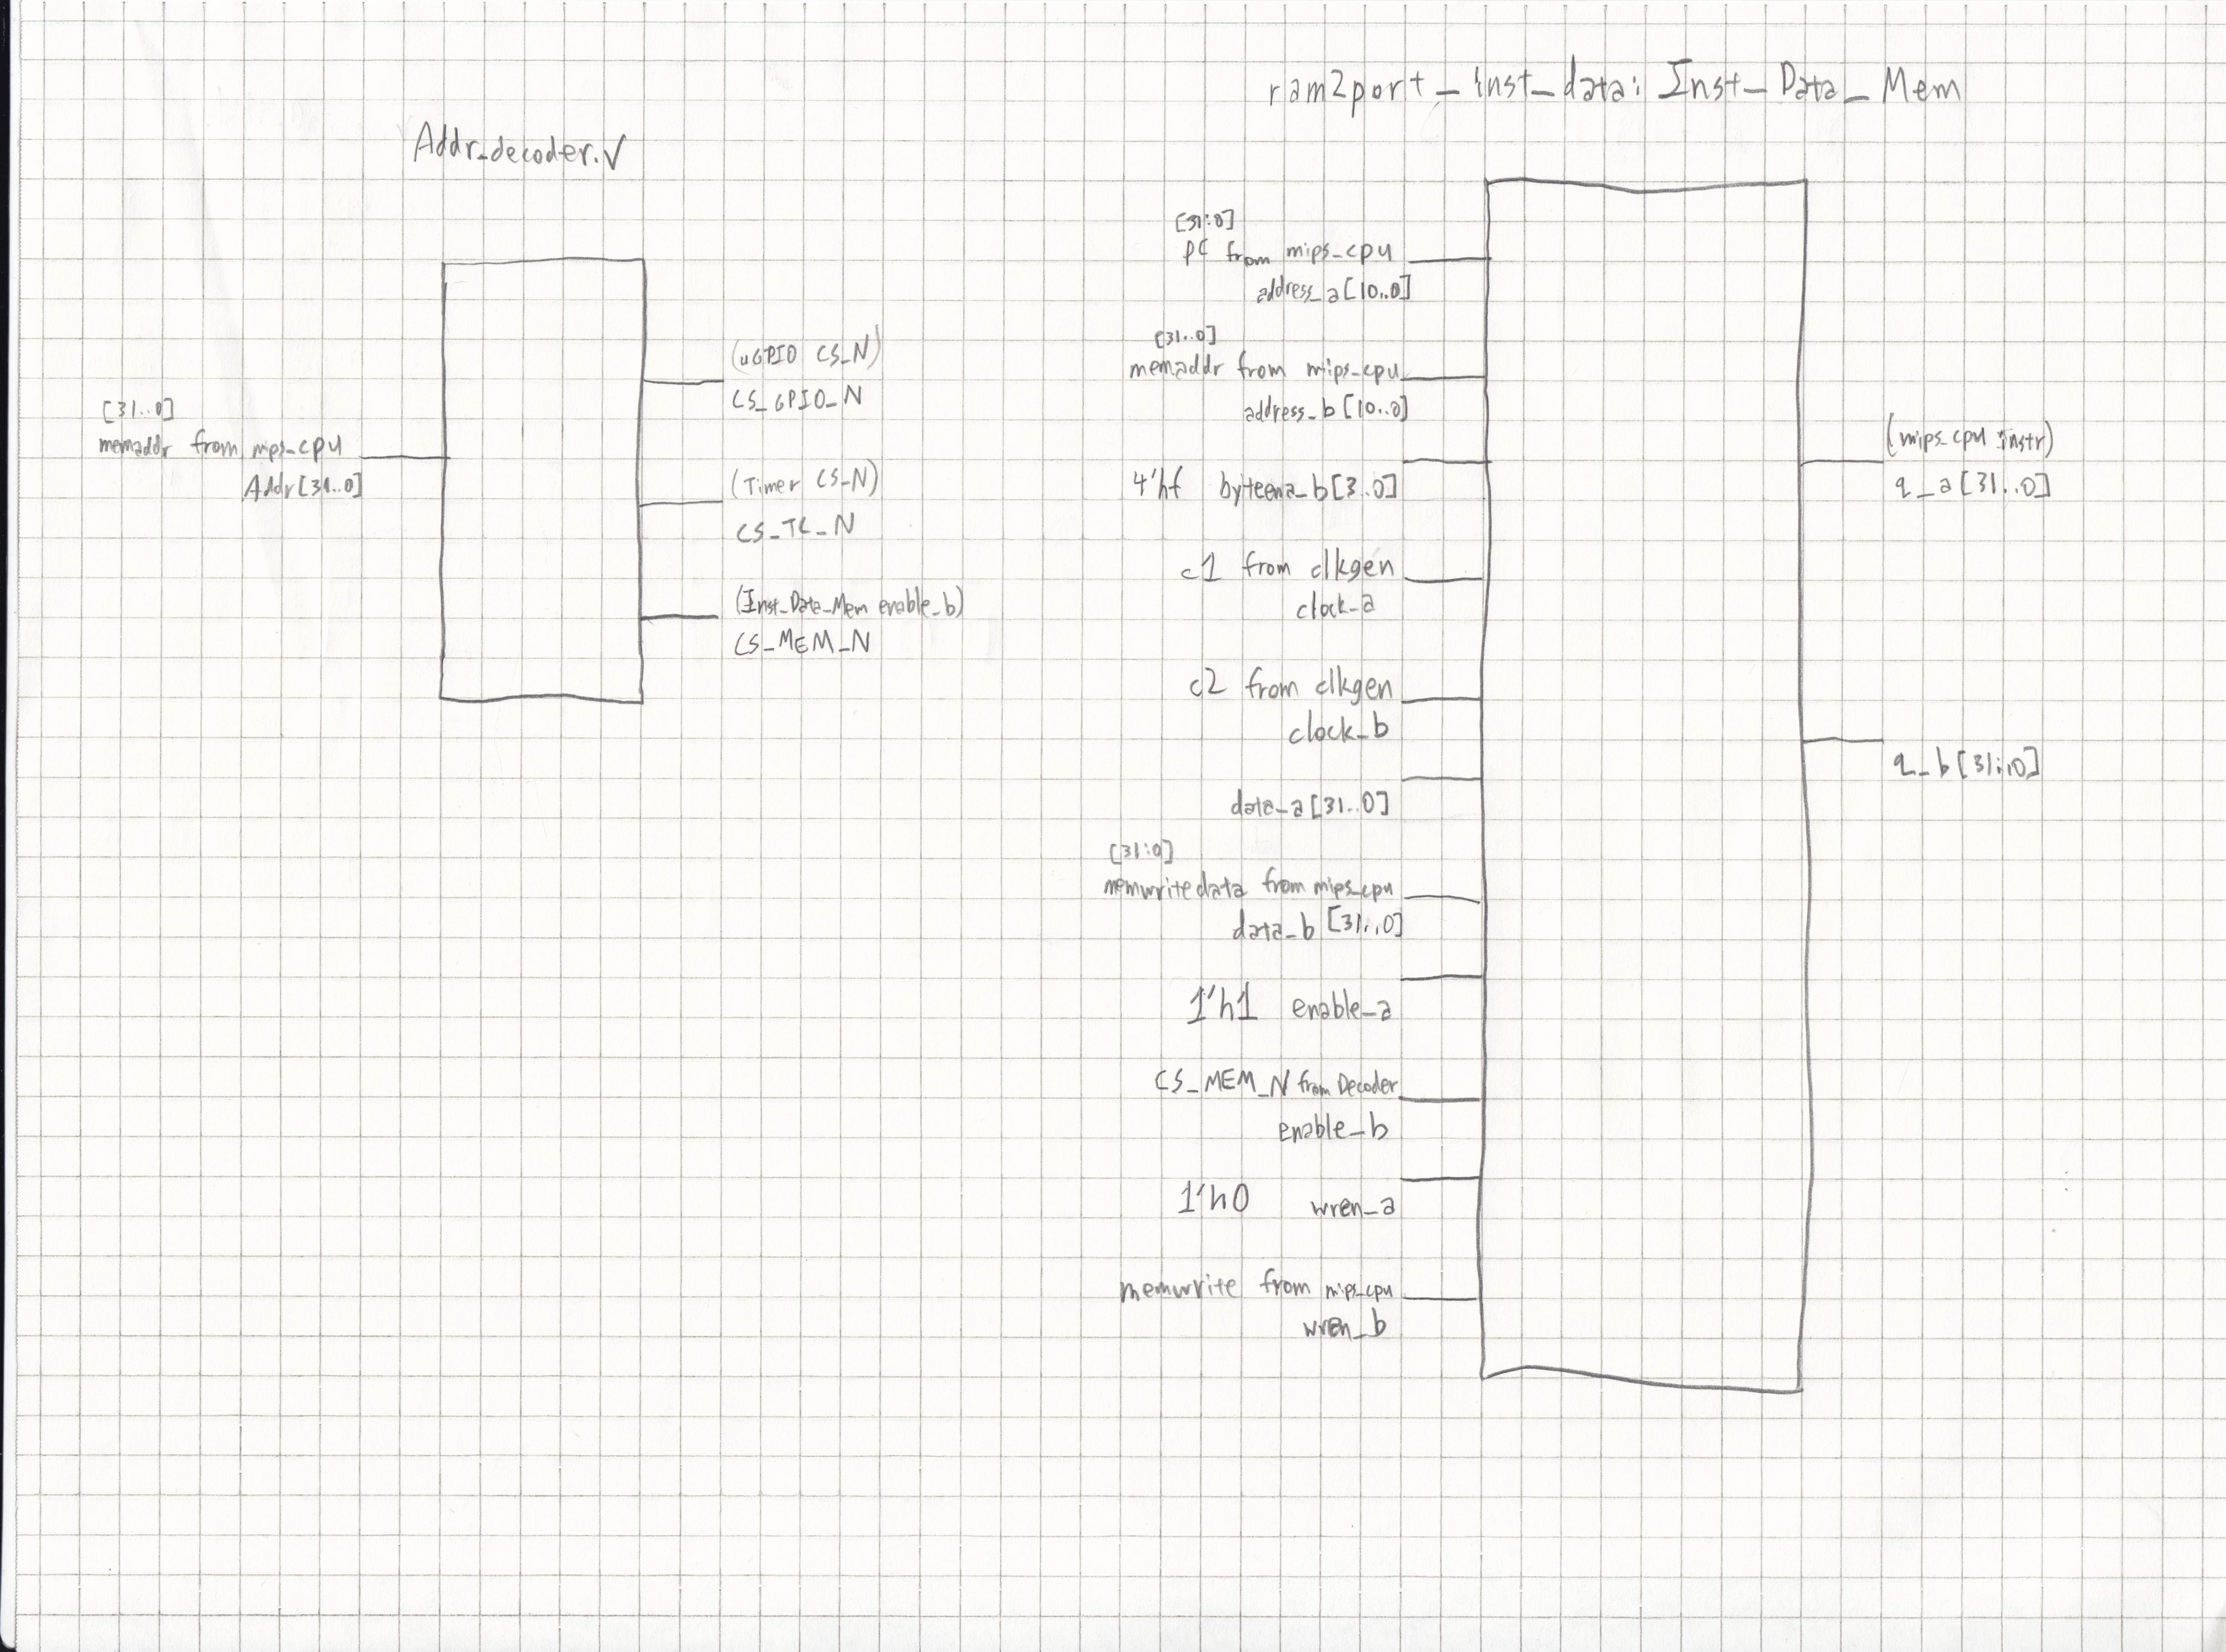 Addr_decoder.v
[31..0]
memaddr from mips_cpu
Addr[31..0]
(uGPIO CS_N)
CS_GPIO_N
(Timer CS_N)
CS_TC_N
(Inst_Data_Mem enable_b)
CS_MEM_N
ram2port_inst_data: Inst_Data_Mem
[31:0]
PC from mips_cpu
address_a[10..0]
[31..0]
memaddr from mips_cpu
address_b[10..0]
4'hf byteena_b[3..0]
c1 from clkgen
clock_a
c2 from clkgen
clock_b
data_a[31..0]
[31:0]
memwritedata from mips_cpu
data_b[31..0]
1'h1 enable_a
CS_MEM_N from Decoder
enable_b
1'h0 wren_a
memwrite from mips_cpu
wren_b
(mips_cpu instr)
q_a[31..0]
q_b[31..0]